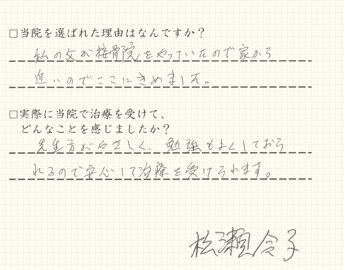 □当院を選ばれた理由はなんですか？
私の父が接骨院をやっていたので家から
近いのでここにきめました。
□実際に当院で治療を受けて、
どんなことを感じましたか？
先生方がやさしく、勉強もよくしておら
れるので安心して治療を受けられます。
松瀬令子